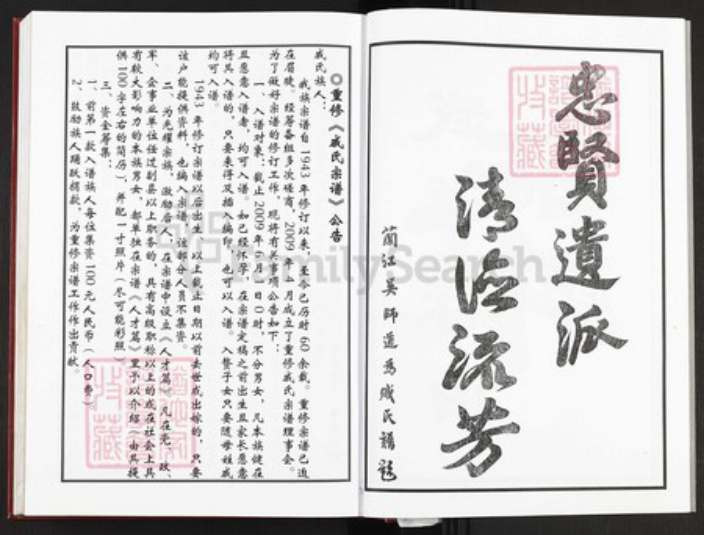 忠賢遺派
清流芳
蘭江吴師道為戚氏譜題
◎重修《戚氏宗谱》公告
戚氏族人：
我族宗谱自1943年修订以来，至今已历时60余载。重修宗谱已迫
在眉睫。经筹备组多次磋商，2009年4月成立了重修戚氏宗谱理事会。
为了做好宗谱的修订工作，现将有关事项公告如下：
一、入谱对象：截止2009年6月1日0时，不分男女，凡本族健在
且愿意入谱者，均可入谱。如已经怀孕，在宗谱定稿之前出生且家长愿意
将其入谱的，只要来得及插入编印，也可以入谱。入赘子女只要随母姓戚
均可入谱。
1943年修订宗谱以后出生，以上截止日期以前去世或出嫁的，只要
该户能提供资料，也编入宗谱，该部分人员不集资。
二、为光耀宗族，激励后人，在宗谱中设立《人才篇》。凡在党、政、
军、企事业单位任过副县以上职务的，具有高级职称以上的或在社会上具
有较大影响力的本族男女，都单独在宗谱《人才篇》里予以介绍（由其提
供100字左右的简历），并配一寸照片（尽可能彩照）。
三、资金筹集：
1、前第一款入谱族人每位集资100元人民币（人口费）
2、鼓励族人踊跃捐款，为重修宗谱工作作出贡献。
FamilySearch